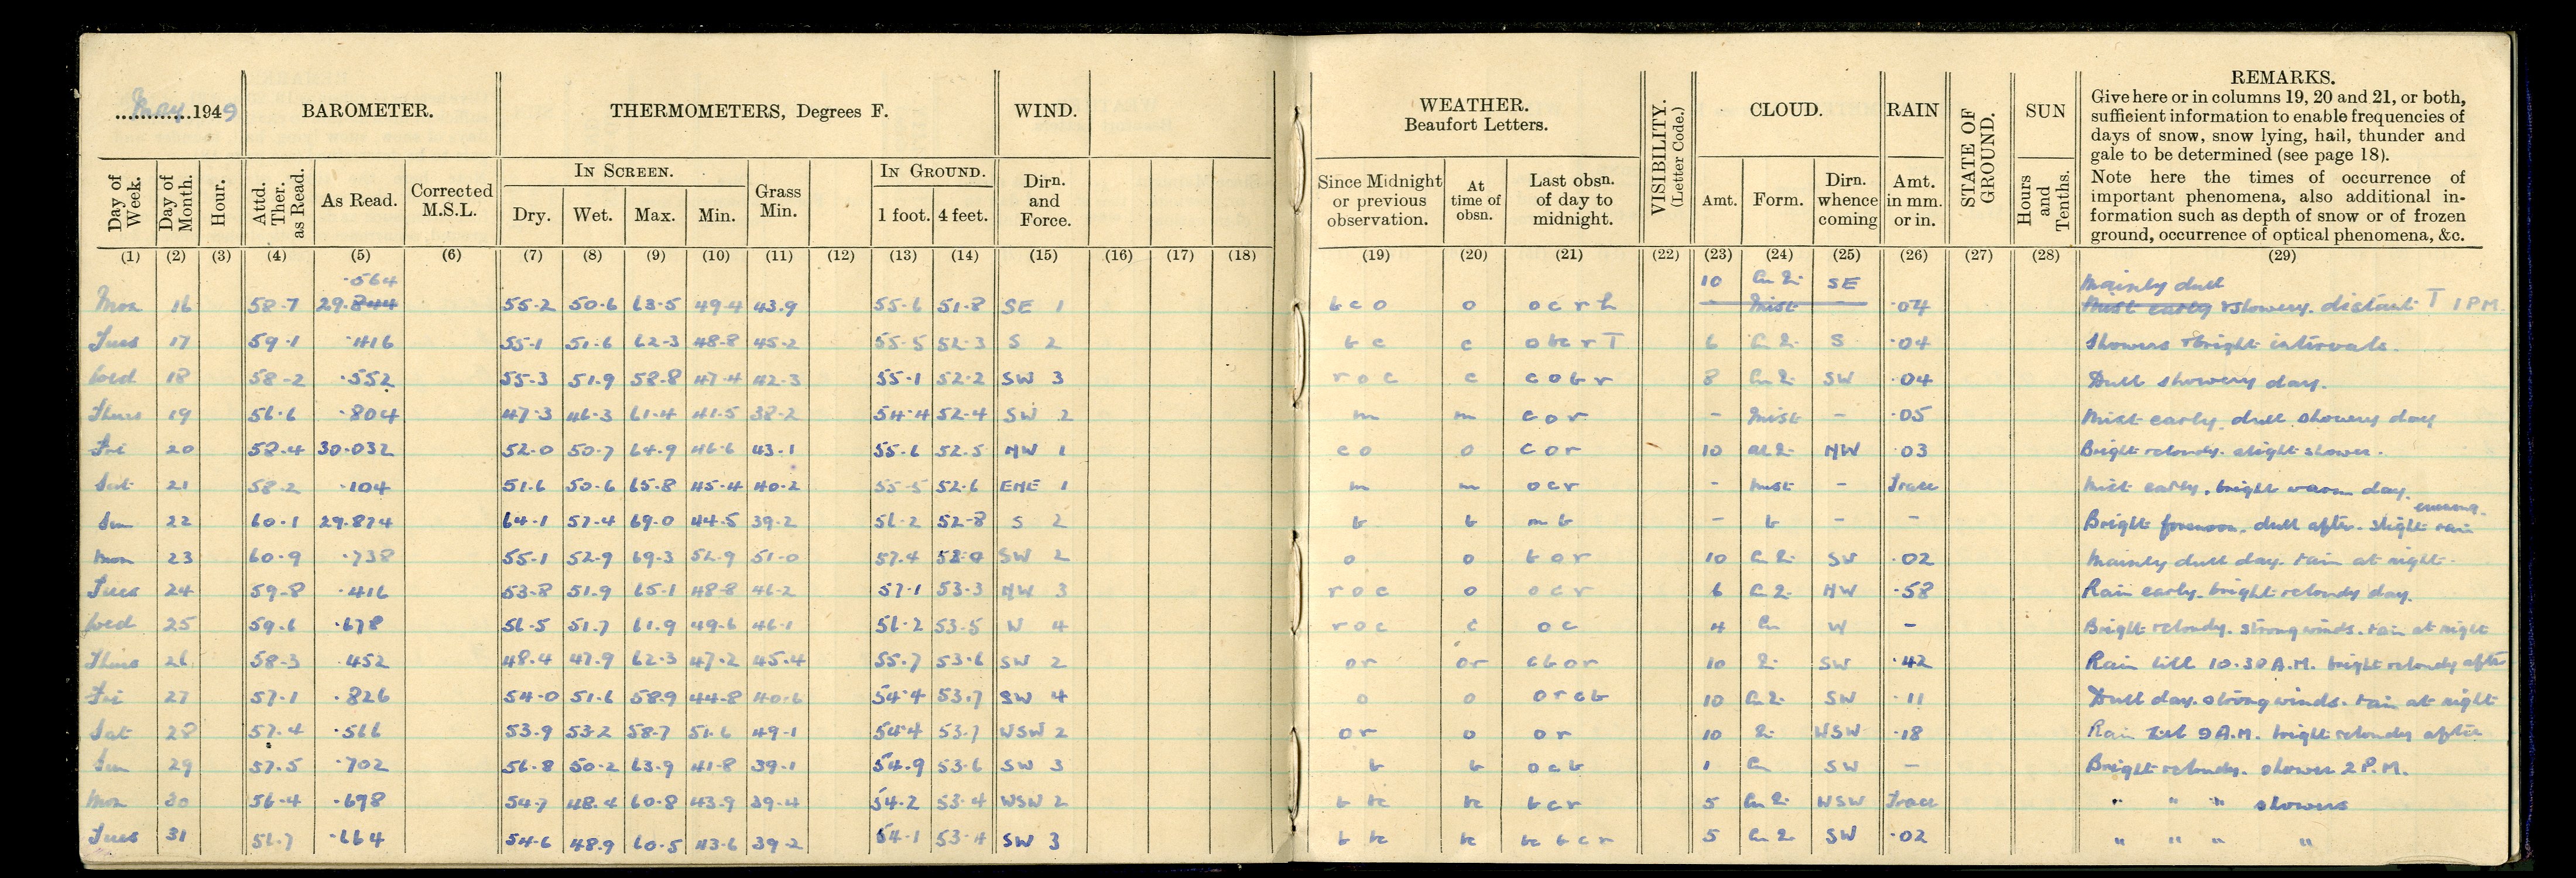 May 1949 BAROMETER. THERMOMETERS, Degrees F. WIND.
Day of Week. Day of Month. Hour. Attd. Ther. as Read. As Read. Corrected M.S.L. IN SCREEN. Dry. Wet. Max. Min. Grass Min. IN GROUND. 1 foot. 4 feet. Dirn. and Force.
(1) (2) (3) (4) (5) (6) (7) (8) (9) (10) (11) (12) (13) (14) (15) (16) (17) (18)
·564
Mon 16 58·7 29·844 55·2 50·6 63·5 49·4 43·9 55·6 51·8 SE 1
Tues 17 59·1 ·416 55·1 51·6 62·3 48·8 45·2 55·5 52·3 S 2
Wed 18 58·2 ·552 55·3 51·9 58·8 47·4 42·3 55·1 52·2 SW 3
Thurs 19 56·6 ·804 47·3 46·3 61·4 41·5 38·2 54·4 52·4 SW 2
Fri 20 58·4 30·032 52·0 50·7 64·9 46·6 43·1 55·6 52·5 NW 1
Sat 21 58·2 ·104 51·6 50·6 65·8 45·4 40·2 55·5 52·6 ENE 1
Sun 22 60·1 29·874 64·1 57·4 69·0 44·5 39·2 56·2 52·8 S 2
Mon 23 60·9 ·738 55·1 52·9 69·3 52·9 51·0 57·4 SW 2
Tues 24 59·8 ·416 53·8 51·9 65·1 48·8 46·2 57·1 53·3 NW 3
Wed 25 59·6 ·678 56·5 51·7 61·9 49·6 46·1 56·2 53·5 W 4
Thurs 26 58·3 ·452 48·4 47·9 62·3 47·2 45·4 55·7 53·6 SW 2
Fri 27 57·1 ·826 54·0 51·6 58·9 44·8 40·6 54·4 53·7 SW 4
Sat 28 57·4 ·566 53·9 53·2 58·7 51·6 49·1 54·4 53·7 WSW 2
Sun 29 57·5 ·702 56·8 50·2 63·9 41·8 39·1 54·9 53·6 SW 3
Mon 30 56·4 ·698 54·7 48·4 60·8 43·9 39·4 54·2 53·4 WSW 2
Tues 31 56·7 ·664 54·6 48·9 60·5 43·6 39·2 54·1 53·4 SW 3
WEATHER. Beaufort Letters. VISIBILITY. (Letter Code.) CLOUD. RAIN STATE OF GROUND. SUN REMARKS.
Give here or in columns 19, 20 and 21, or both,
sufficient information to enable frequencies of
days of snow, snow lying, hail, thunder and
gale to be determined (see page 18).
Note here the times of occurrence of
important phenomena, also additional in-
formation such as depth of snow or of frozen
ground, occurrence of optical phenomena, &c.
Since Midnight or previous observation. At time of obsn. Last obsn. of day to midnight. Amt. Form. Dirn. whence coming Amt. in mm. or in. Hours and Tenths.
(19) (20) (21) (22) (23) (24) (25) (26) (27) (28) (29)
10 SE Mainly dull
b c o o o c r h Mist ·04 Mist early & showery. distant T 1 PM.
b c c o bc r T 6 S ·04 Showers & bright intervals.
r o c c c o b r 8 SW ·04 Dull showery day.
m m c o r - Mist - ·05 Mist early, dull showery day
c o o c o r 10 NW ·03 Bright & cloudy. slight shower.
m m o c r - Mist - Trace Mist early, bright warm day.
b b m b - b - - Bright forenoon. dull after. slight rain evening.
o o b o r 10 SW ·02 Mainly dull day. rain at night.
r o c o o c r 6 NW ·58 Rain early. bright & cloudy day.
r o c c o c 4 Cu W - Bright & cloudy. strong winds. rain at night
o r o r c b o r 10 SW ·42 Rain till 10·30 A.M. bright & cloudy after
o o o r c b 10 SW ·11 Dull day. strong winds. rain at night
o r o o r 10 WSW ·18 Rain till 9 A.M. bright & cloudy after
b b o c b 1 Cu SW - Bright & cloudy. shower 2 P.M.
b bc bc b c r 5 WSW Trace " " " showers
b bc bc bc b c r 5 SW ·02 " " " "